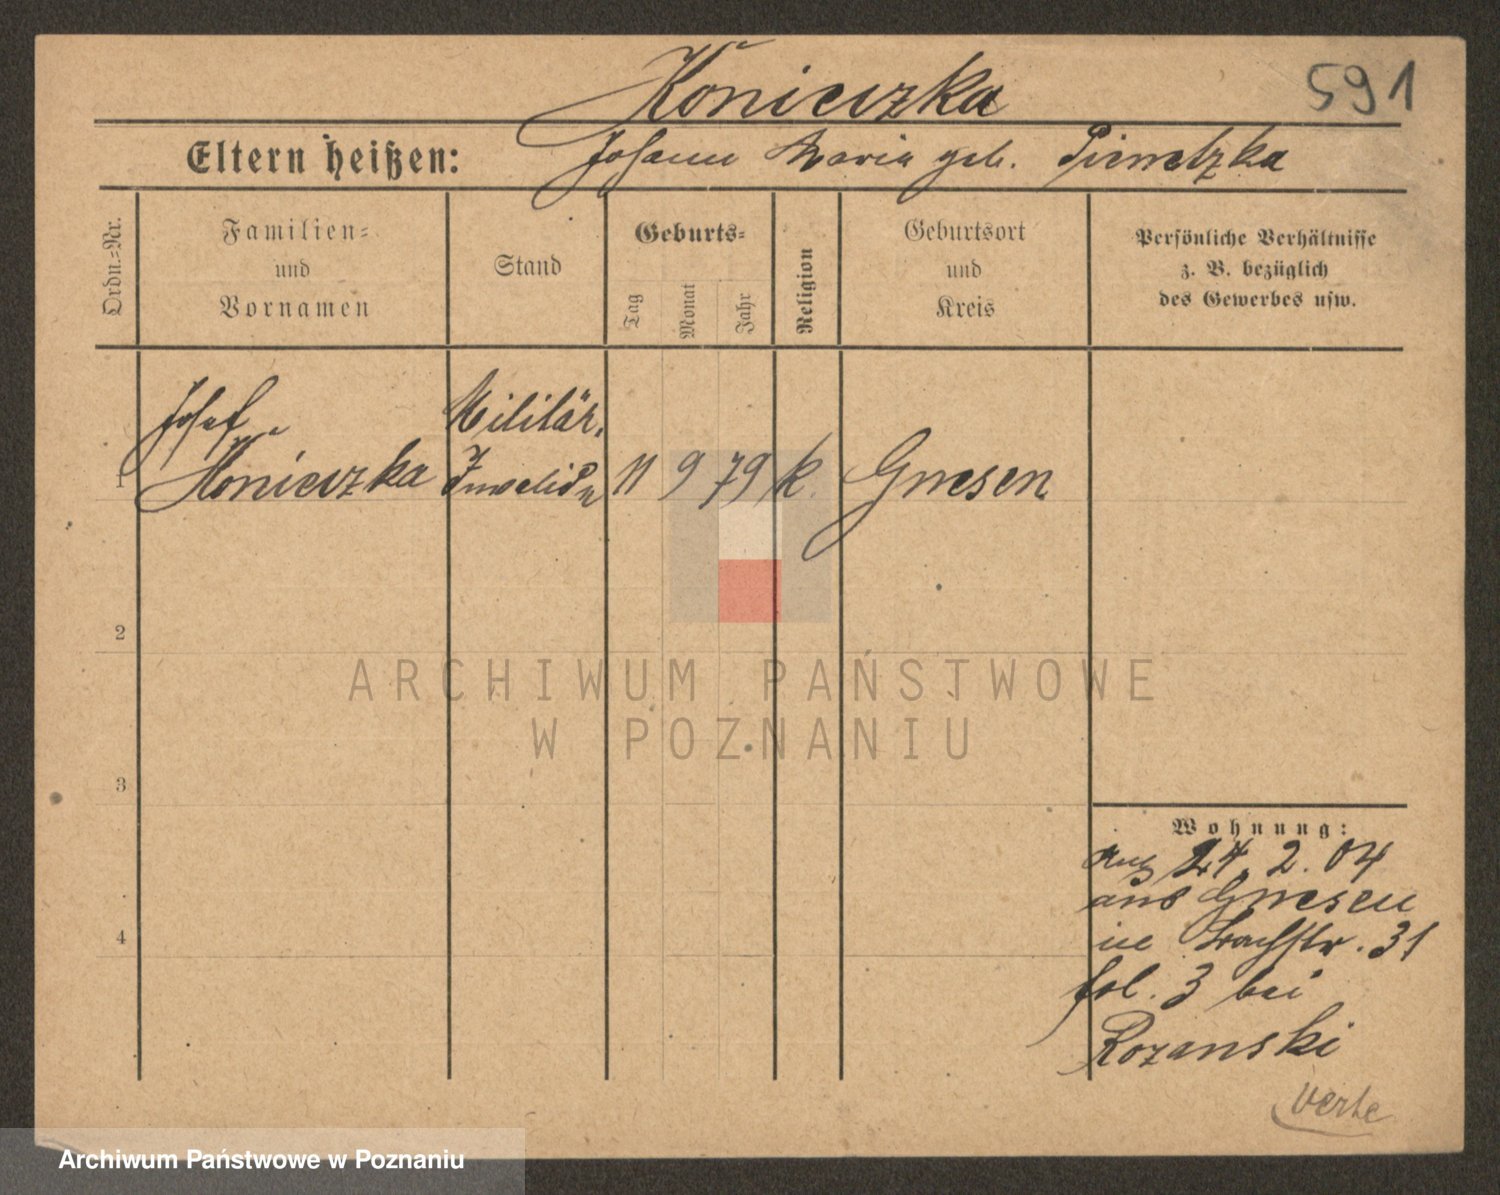 Konieczka
591
Eltern heißen: Johann Maria geb.
Ordn.-Nr.
Familien-
und
Vornamen
Stand
Geburts-
Tag
Monat
Jahr
Religion
Geburtsort
und
Kreis
Persönliche Verhältnisse
z. B. bezüglich
des Gewerbes usw.
Josef Militär.
1 Konieczka 11 9 79 k. Gnesen
2
3
4
Wohnung:
24. 2. 04
aus Gnesen
in 31
fol. 3 bei
Rozanski
verte
ARCHIWUM PAŃSTWOWE
W POZNANIU
Archiwum Państwowe w Poznaniu